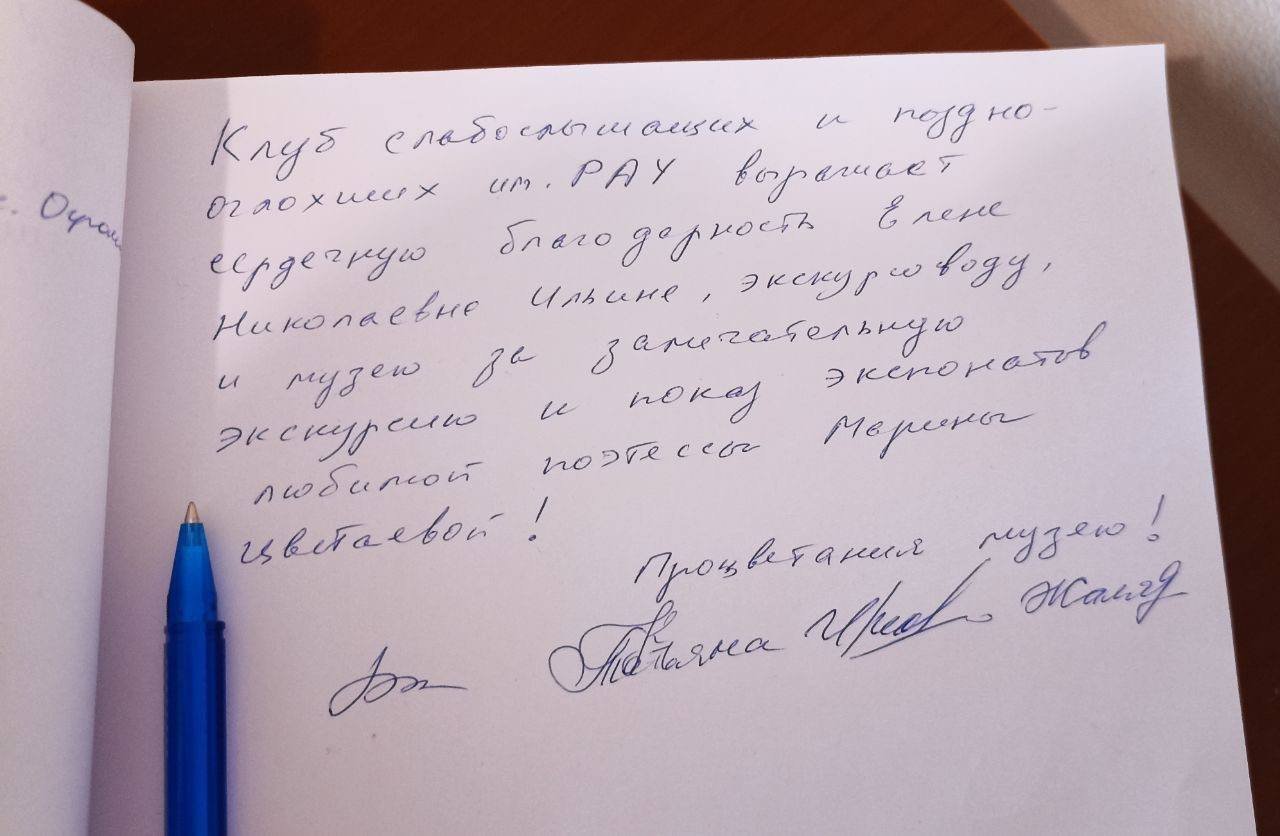 Клуб слабослышащих и поздно-
оглохших им. РАУ выражает
сердечную благодарность Елене
Николаевне Ильине, экскурсоводу,
и музею за замечательную
экскурсию и показ экспонатов
любимой поэтессы Марины
Цветаевой!
Процветания музею!
Татьяна